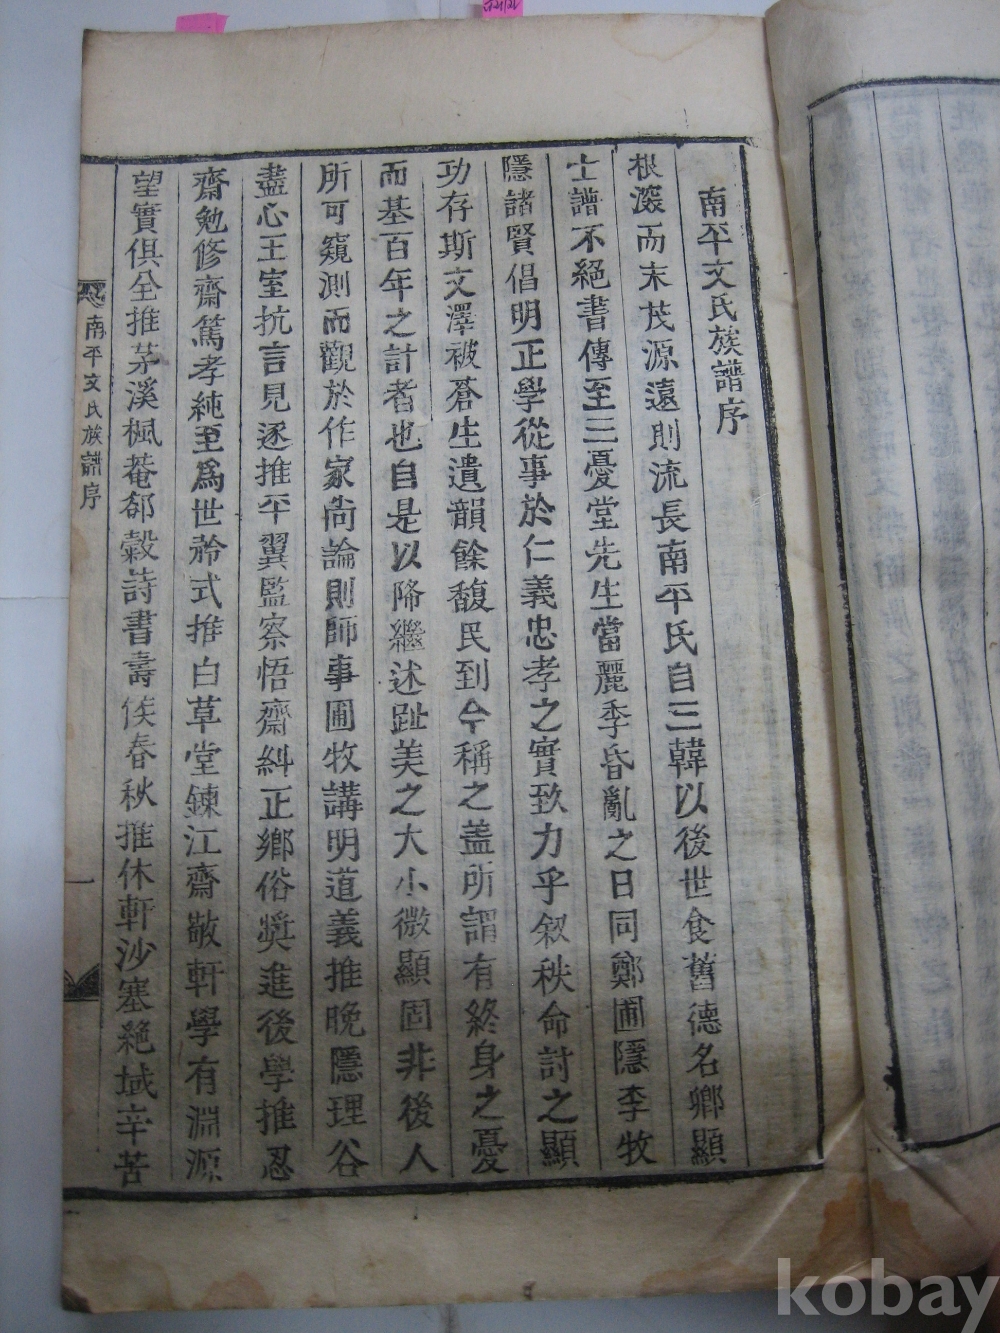 南平文氏族譜序
根深而末茂源遠則流長南平氏自三韓以後世食舊德名卿顯
士譜不絕書傳至三憂堂先生當麗季昏亂之日同鄭圃隱李牧
隱諸賢倡明正學從事於仁義忠孝之實致力乎叙秩命討之顯
功存斯文澤被蒼生遺韻餘馥民到今稱之盖所謂有終身之憂
而基百年之計者也自是以降繼述趾美之大小微顯固非後人
所可窺測而觀於作家尙論則師事圃牧講明道義推晚隱理谷
盡心王室抗言見逐推平翼監察悟齋糾正鄉俗奬進後學推忍
齋勉修齋篤孝純至爲世矜式推白草堂鍊江齋敬軒學有淵源
望實俱全推茅溪楓菴郤縠詩書壽俟春秋推休軒沙塞絕域辛苦
南平文氏族譜序
一
kobay